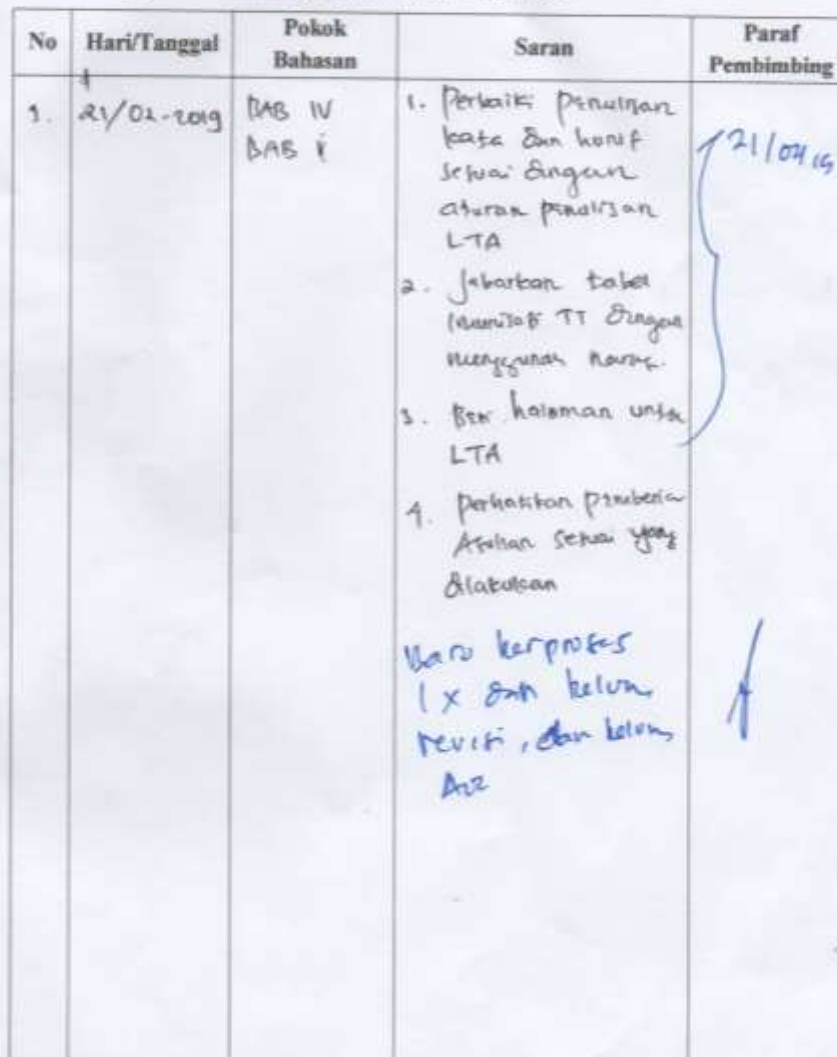 No Hari/Tanggal Pokok Bahasan Saran Paraf Pembimbing
1. 21/02-2019 BAB IV
BAB V
1. Perbaiki penulisan
kata dan huruf
sesuai dengan
aturan penulisan
LTA
2. Jabarkan tabel
imunisasi TT dengan
menggunakan
3. Beri halaman untuk
LTA
4. Perhatikan pemberian
Asuhan sesuai yang
dilakukan
21/04 19
Baru berproses
1x dan belum
revisi, dan belum